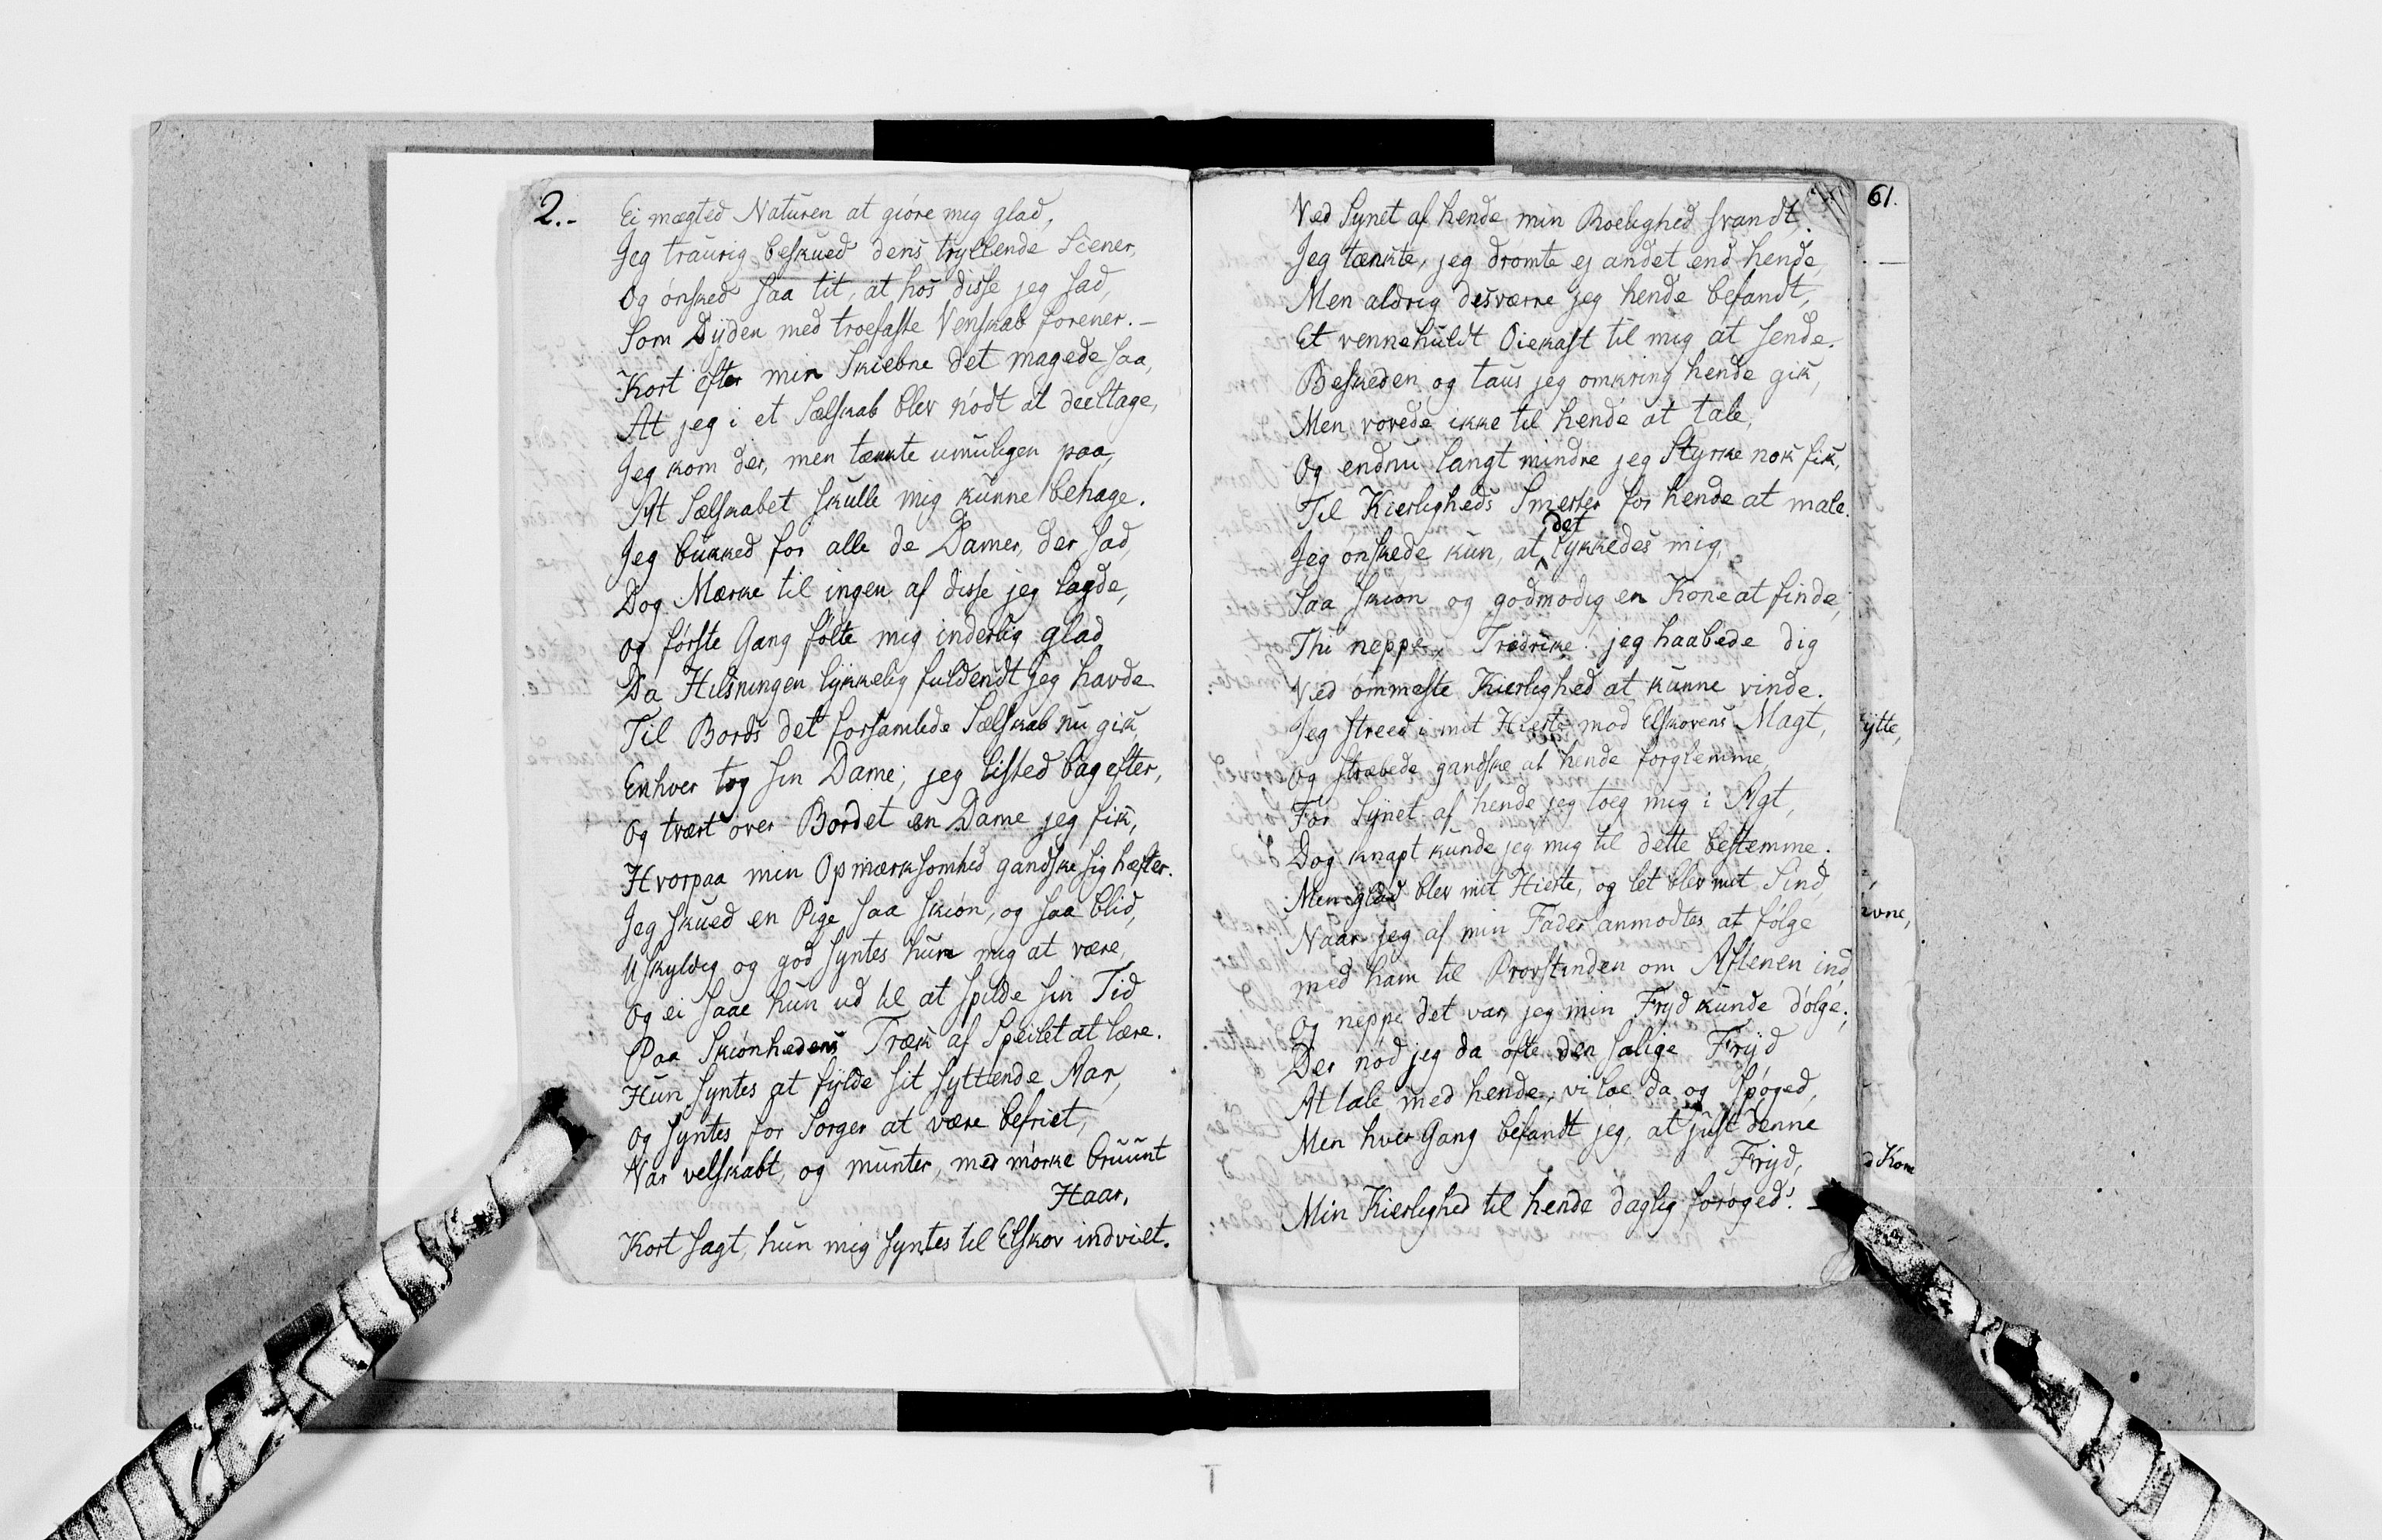 2.-
Ei mægted Naturen at giøre mig glad,
Jeg traurig beskued dens tryllende Scener,
Og ønsked saa tit, at hos disse jeg sad,
Som Dyden med troefaste Venskab forener.-
Kort efter min Skiebne det magede saa,
At jeg i et Sælskab blev nødt at deeltage,
Jeg kom der, men tænkte umuligen paa,
At Sælskabet skulle mig kunne behage.
Jeg bukked for alle de Damer, der sad,
Dog Mærke til ingen af disse jeg lagde,
og første Gang følte mig inderlig glad
Da Hilsningen lykkelig fuldendt jeg havde
Til Bords det forsamlede Sælskab nu gik,
Enhver tog sin Dame, jeg listed bag efter,
og tvært over Bordet en Dame jeg fik,
Hvorpaa min Opmærksomhed gandske sig hæfter.
Jeg skued en Pige saa skiøn, og saa blid,
Uskyldig og god syntes hun mig at være,
og ei saae hun ud til at spilde sin Tid
Paa Skiønhedens Træk af Speilet at lære.
Hun syntes at fylde sit syttende Aar,
og syntes for Sorger at være befriet,
Var velskabt, og munter, med mørke bruunt
Haar,
Kort sagt, hun mig syntes til Elskov indviet.
61.
Ved Synet af hende min Roelighed svandt.
Jeg tænkte, jeg drømte ej andet end hende,
Men aldrig desværre jeg hende befandt,
Et vennehuldt Øiekast til mig at sende.
Beskeden og taus jeg omkring hende gik,
Men vovede ikke til hende at tale,
Og endnu langt mindre jeg Styrke nok fik,
Til Kierligheds Smerter for hende at male.
det
Jeg ønskede kun, at lykkedes mig,
Saa skiøn og godmodig en Kone at finde,
Thi neppe, Fredrike! jeg haabede dig
Ved ømmeste Kierlighed at kunne vinde.
Jeg streed i mit Hierte mod Elskovens Magt,
og stræbede gandske at hende forglemme,
For Synet af hende jeg toeg mig i Agt,
Dog knapt kunde jeg mig til dette bestemme.
Men glad blev mit Hierte, og let blev mit Sind,
Naar jeg af min Fader anmodtes at følge
med ham til Provstinden om Aftenen ind,
og neppe det var, jeg min Fryd kunde dølge.
Der nød jeg da ofte den salige Fryd
At tale med hende, vi loe da og spøged,
Men hver Gang befandt jeg, at just denne
Fryd,
Min Kierlighed til hende daglig forøged. -
ytte,
evne,
d Kone